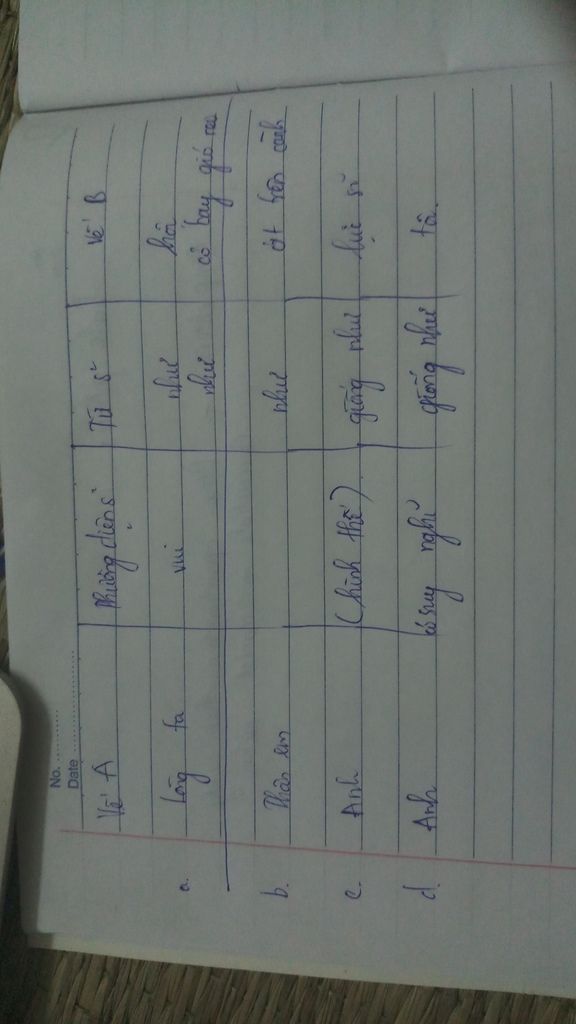 No. ..........
Date ..............
Vế A Phương diện s² Từ s² Vế B
a. Lòng ta vui như hội
như cờ bay gió reo
b. Thân em như ớt trên cành
c. Anh (hình thể) giống như lực sĩ
d. Anh có suy nghĩ giống như tôi.